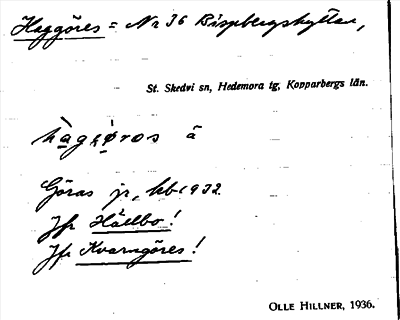 Haggöres = Nr 36 Bispbergshyttan,
St. Skedvi sn, Hedemora tg, Kopparbergs län.
å
Göras jr, kb 1932
Jfr Hällbo!
Jfr Kvarngöres!
OLLE HILLNER, 1936.